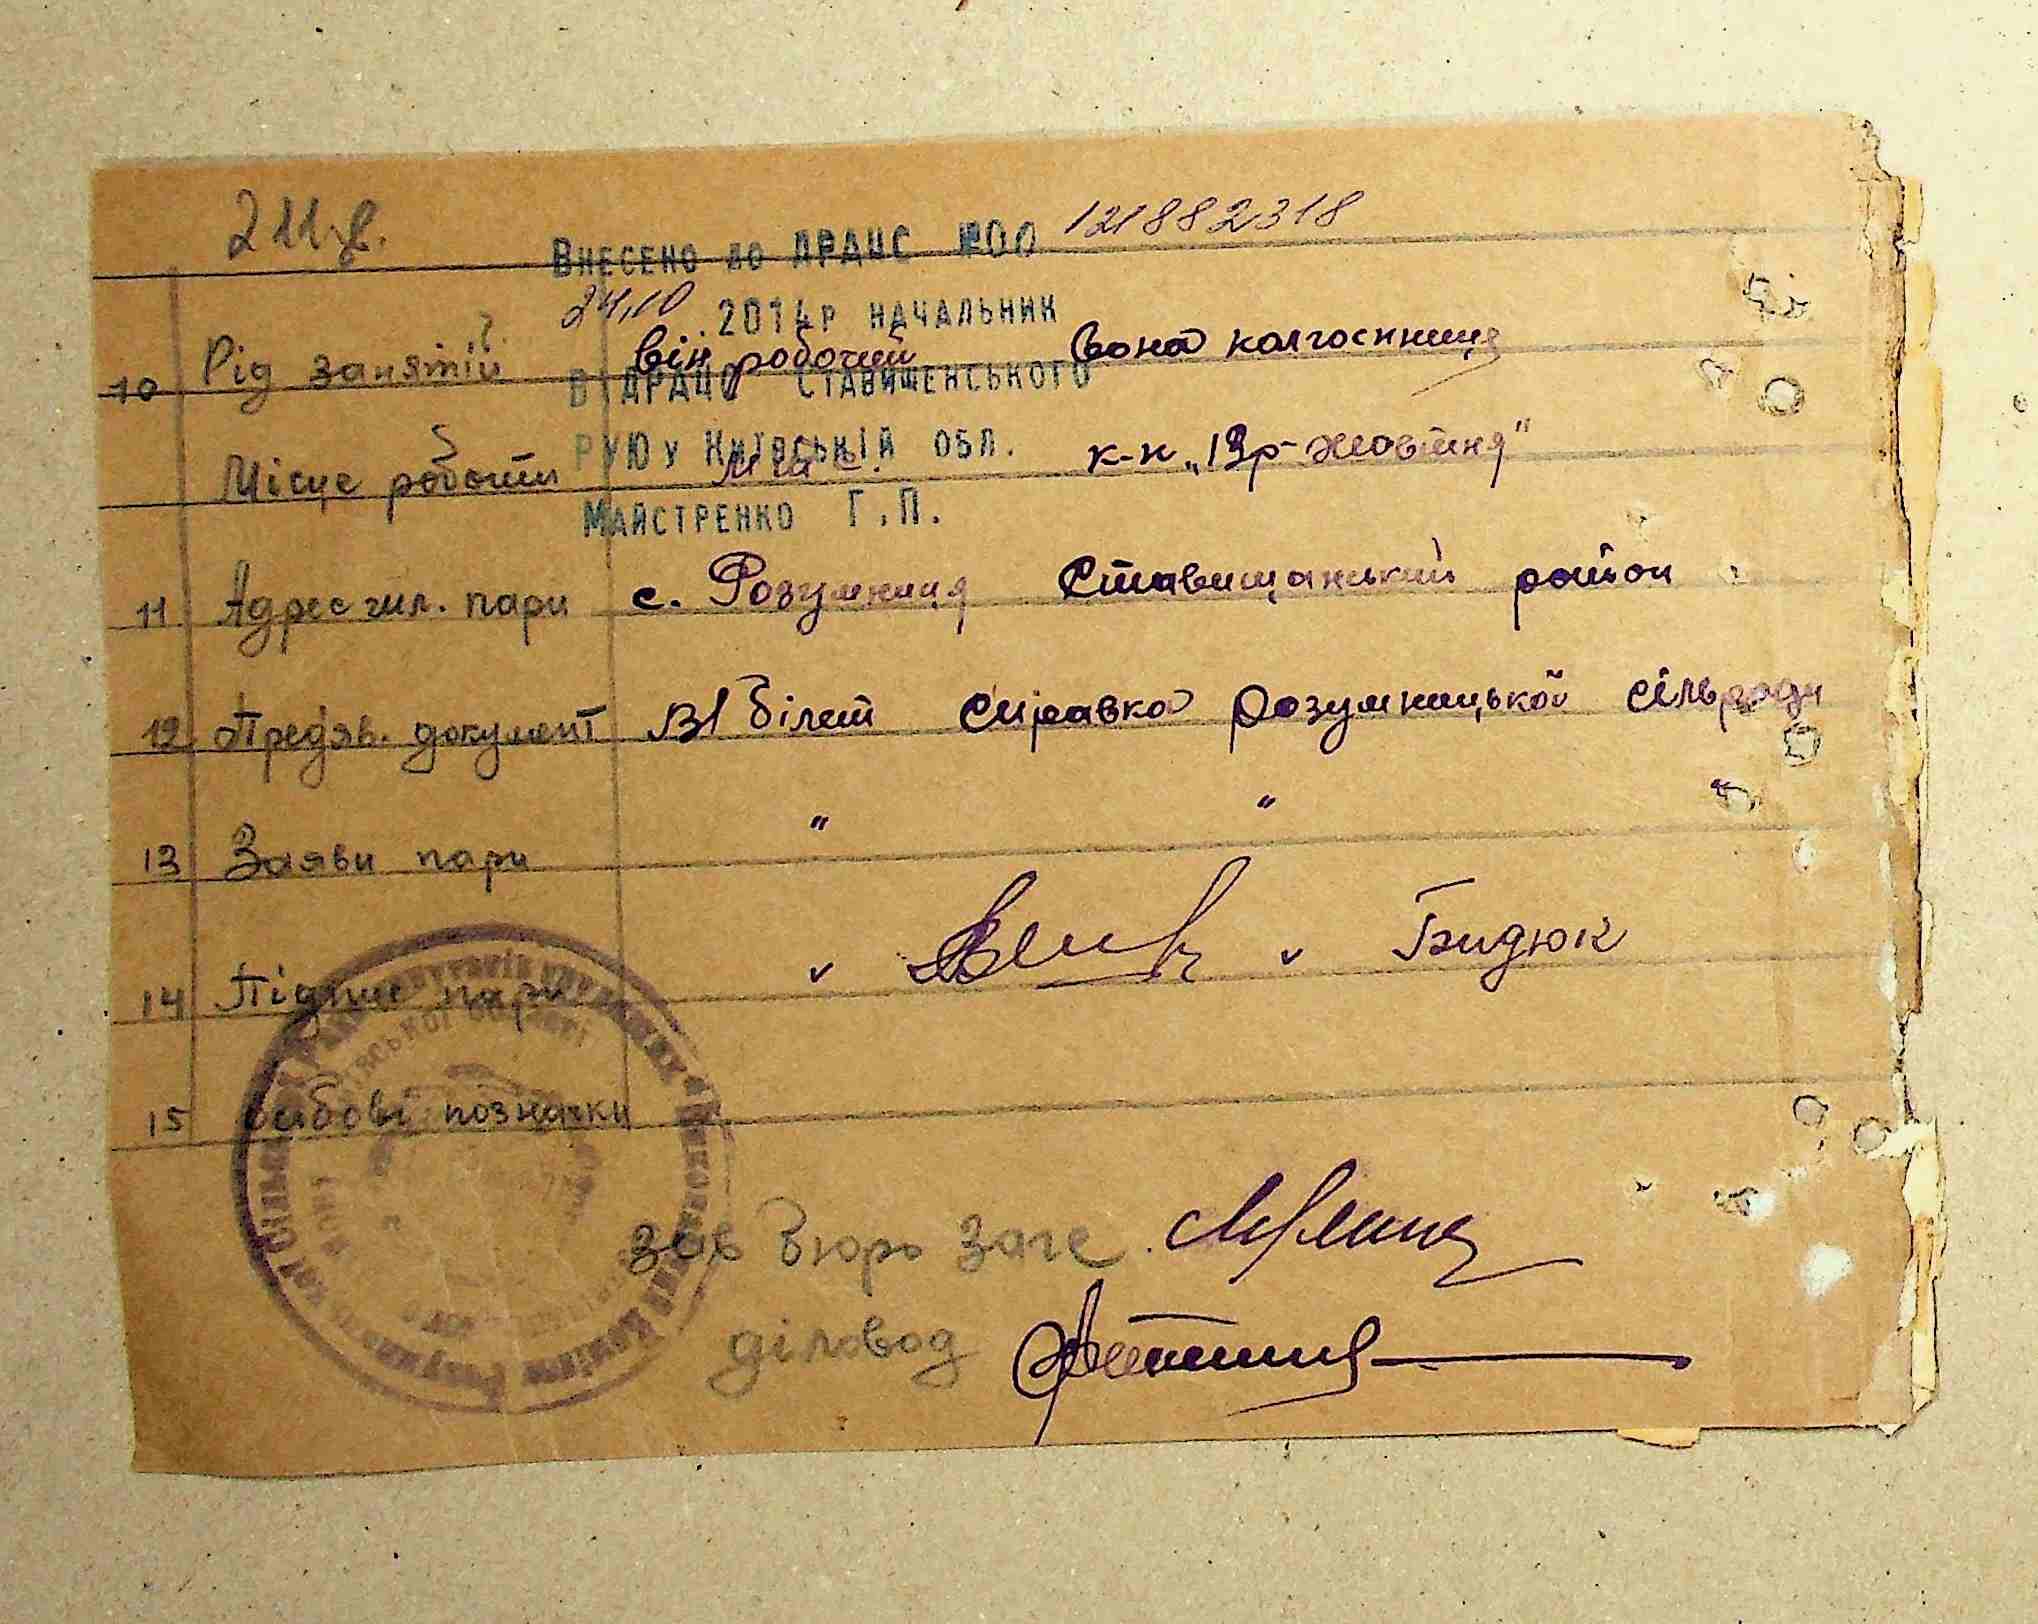 211зв.
Внесено до ДРАЦС №00 121882318
24.10.2014р начальник
10 Рід занятій він робочий вона колгоспниця
ВДРАЦС Ставищенського
РУЮ у Київській обл.
Місце роботи к-п „13р-Жовтня"
Майстренко Г.П.
11 Адрес гил. пари с. Розумниця Ставищанський район
12 Предяв. документ В/білет Справка Розумницької сільради
" " "
13 Заяви пари
14 Підпис пари v v Бидюк
15 Особові позначки
зав Бюро Загс
діловод